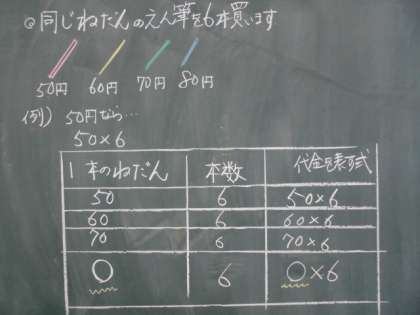 ◎同じねだんのえん筆を6本買います
50円 60円 70円 80円
例) 50円なら…
50×6
1本のねだん 本数 代金を表す式
50 6 50×6
60 6 60×6
70 6 70×6
○ 6 ○×6